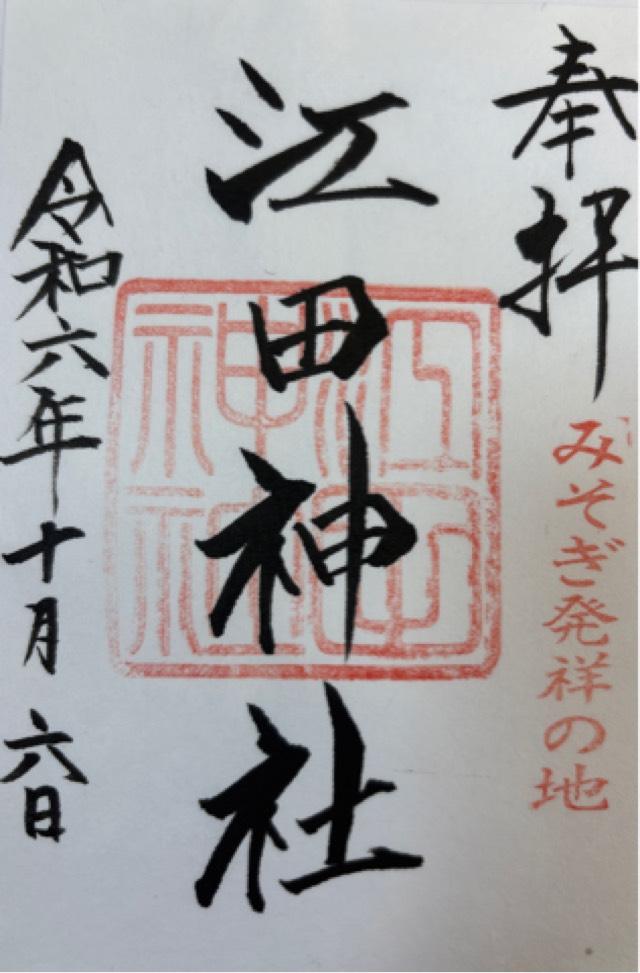 奉拝
みそぎ発祥の地
江田神社
江田
神社
令和六年十月六日